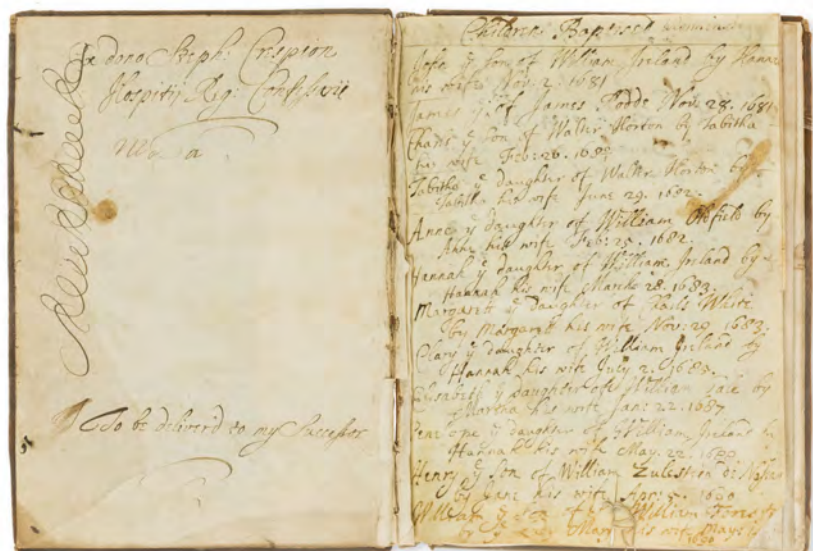 Ex dono Steph: Crespion
Hospitij Reg: Confessarij
To be deliverd to my Successor
Children Baptised
John yᵉ Son of William Ireland by Hannah
his wife Nov. 2. 1681
James of James Nov. 28. 1681
yᵉ Son of Walter Horton by Tabitha
his wife Feb: 26.
Tabitha yᵉ daughter of Walter Horton by
Tabitha his wife June 29. 1682.
Anne yᵉ daughter of William Oldfield by
Anne his wife Feb: 25. 1682.
Hannah yᵉ daughter of William Ireland by
Hannah his wife March 28. 1683.
Margarett yᵉ daughter of White
by Margarett his wife Nov: 29 1683.
Clary yᵉ daughter of William Ireland by
Hannah his wife July 2. 1685.
Elisabeth yᵉ daughter of William by
Martha his wife Jan: 22. 1687
yᵉ daughter of William Ireland by
Hannah his wife May. 22. 1690
Henry yᵉ Son of William Zulestein de Nassau
by Jane his wife Apr: 1690
William yᵉ Son of William
by Mary his wife May
1690